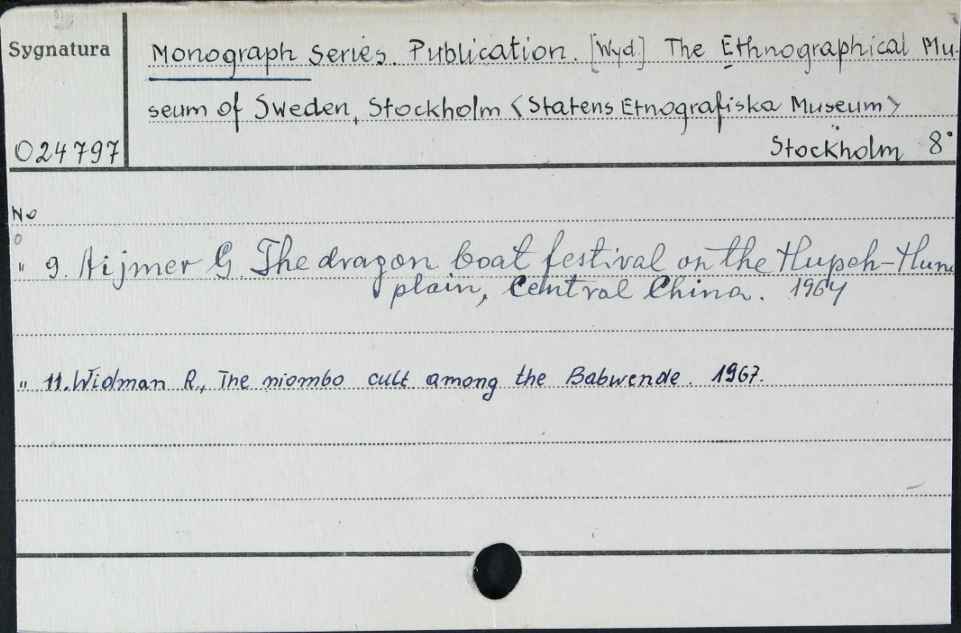 Sygnatura
Monograph Series. Publication. [Wyd.] The Ethnographical Mu-
seum of Sweden, Stockholm <Statens Etnografiska Museum>
024797
Stockholm 8°
No
" 9. Aijmer G. The dragon boat festival on the Hupeh-Huna
plain, Central China. 1964
" 11. Widman R., The niombo cult among the Babwende. 1967.